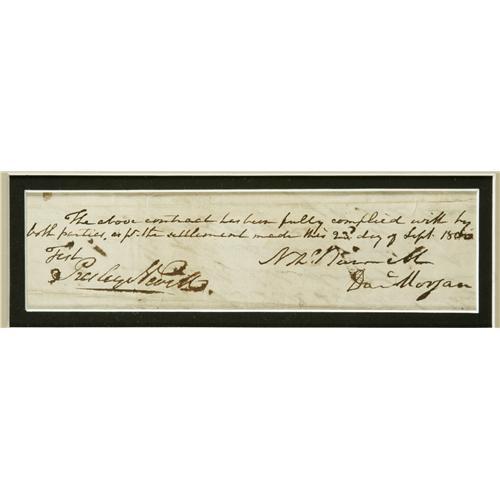 The above contract has been fully complied with by
both parties, as pr the settlement made this 2d day of Sept. 1800
Test
Presley Nevill
Dan: Morgan